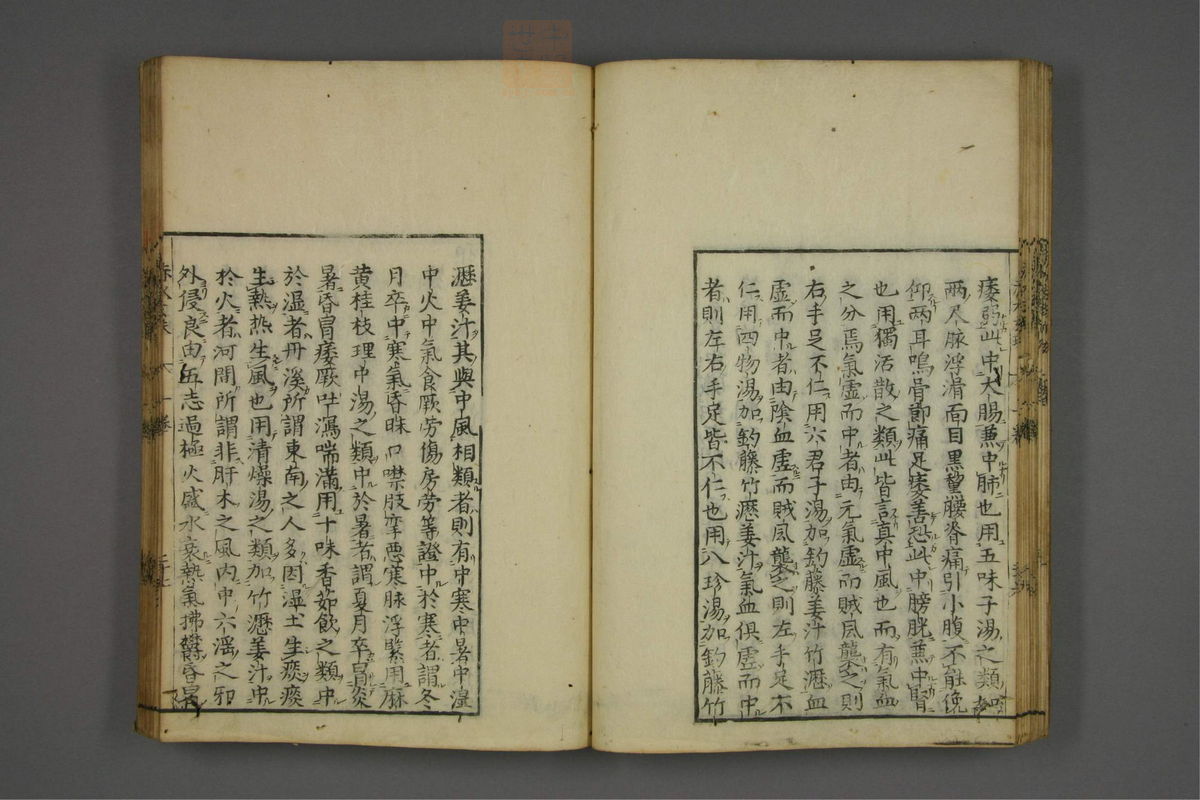 痿弱此中大腸兼中肺也用五味子湯之類如
兩尺脉浮滑面目黒黧腰脊痛引小腹不能俛
仰兩耳嗚骨節痛足痿善恐此中膀胱兼中腎
也用獨活散之類此皆言真中風也而有氣血
之分焉氣虛而中者由元氣虛而賊風襲之則
右手足不仁用六君子湯加釣藤姜汁竹瀝血
虛而中者由陰血虛而賊風襲之則左手足不
仁用四物湯加釣藤竹瀝姜汁氣血俱虛而中
者則左右手足皆不仁也用八珍湯加釣藤竹
瀝姜汁其與中風相類者則有中寒中暑中湿
中火中氣食厥劳傷房劳等證中於寒者謂冬
月卒中寒氣昏眛口噤肢孿悪寒脉浮緊用麻
黄桂枝理中湯之類中於暑者謂夏月卒冒炎
暑昏冒痿厥吐瀉喘滿用十味香茹飲之類中
於湿者丹溪所謂東南之人多因湿土生痰痰
生熱热生風也用清燥湯之類加竹瀝姜汁中
於火者河間所謂非肝木之風内中六淫之邪
外侵良由五志過極火盛水衰熱氣拂欝昏冒